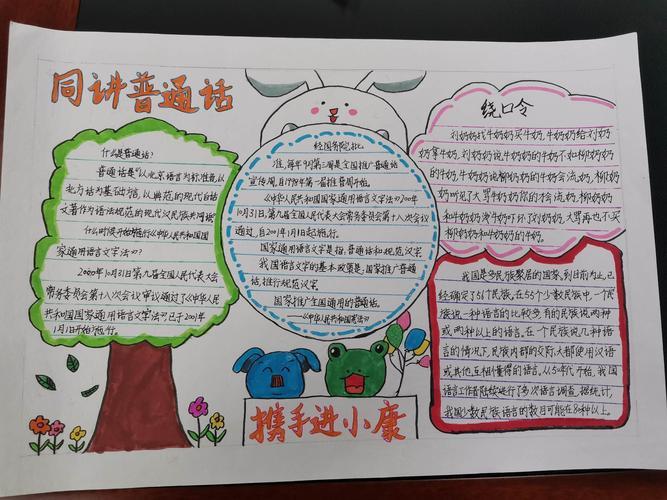 同讲普通话
什么是普通话?
普通话是"以北京语言为标准音,以
北方话为基础方语,以典范的现代白话
文著作为语法规范的现代汉民族共同语"
什么时候开始施行《中华人民共和国国
家通用语言文字法》?
2000年10月31日第九届全国人民代表大会
常务委员会第十八次会议审议通过了《中华人民
共和国国家通用语言文字法》已于2001年
1月1日开始施行。
经国务院批
准,每年9月第三周是全国推广普通话
宣传周,自1998年第一届推普周开始。
《中华人民共和国国家通用语言文字法》2000年
10月31日,第九届全国人民代表大会常务委员会第十八次会议
通过,自2001年1月1日起施行。
国家通用语言文字是指,普通话和规范汉字
我国语言文字的基本政策是,国家推广普通
话,推行规范汉字
国家推广全国通用的普通话。
——《中华人民共和国宪法》
绕口令
刘奶奶找牛奶奶买牛奶,牛奶奶给刘奶
奶拿牛奶,刘奶奶说牛奶奶的牛奶不如柳奶奶
的牛奶,牛奶奶说柳奶奶的牛奶会流奶,柳奶
奶听见了大骂牛奶奶你的才会流奶,柳奶奶
和牛奶奶泼牛奶吓坏了刘奶奶,大骂再也不买
柳奶奶和牛奶奶的牛奶。
我国是多民族聚居的国家,到目前为止,已
经确定了56个民族,在55个少数民族中,一个民
族说一种语言的比较多,有的民族说两种
或两种以上的语言。在一个民族说几种语
言的情况下,民族内部的交际,大都使用汉语
或其他互相懂得的语言,从50年代开始,我国
语言工作者陆续进行了多次语言调查,据统计,
我国少数民族语言的数目可能在80种以上。
携手进小康